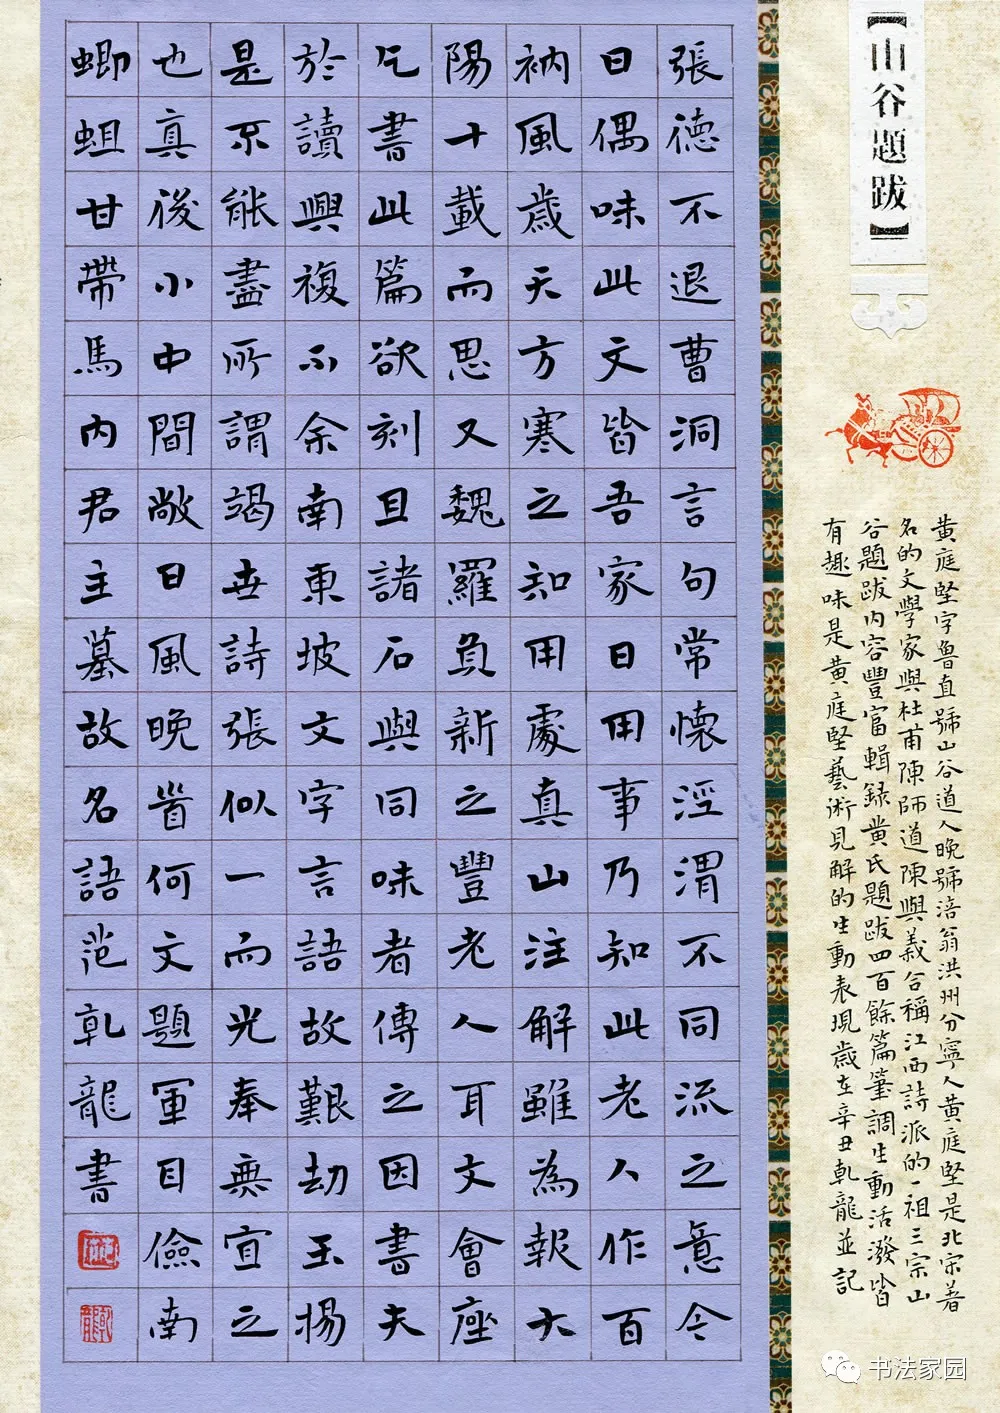 【山谷題跋】
張德不退曹洞言句常懷涇渭不同流之意今
日偶味此文皆吾家日用事乃知此老人作百
衲風歲天方寒之知用處真山注解雖為報大
陽十載而思又魏羅負新之豐老人耳文會座
乞書此篇欲刻且諸石與同味者傳之因書夫
於讀興複不余南東坡文字言語故艱劫玉揚
是不能盡所謂竭世詩張似一而光奉無宣之
也真後小中間敞日風晚首何文題軍目儉南
蝍蛆甘帶馬內君主墓故名語范乾龍書
黃庭堅字魯直號山谷道人晚號涪翁洪州分寧人黃庭堅是北宋著
名的文學家與杜甫陳師道陳與義合稱江西詩派的一祖三宗山
谷題跋內容豐富輯錄黃氏題跋四百餘篇筆調生動活潑皆
有趣味是黃庭堅藝術見解的生動表現歲在辛丑乾龍並記
书法家园